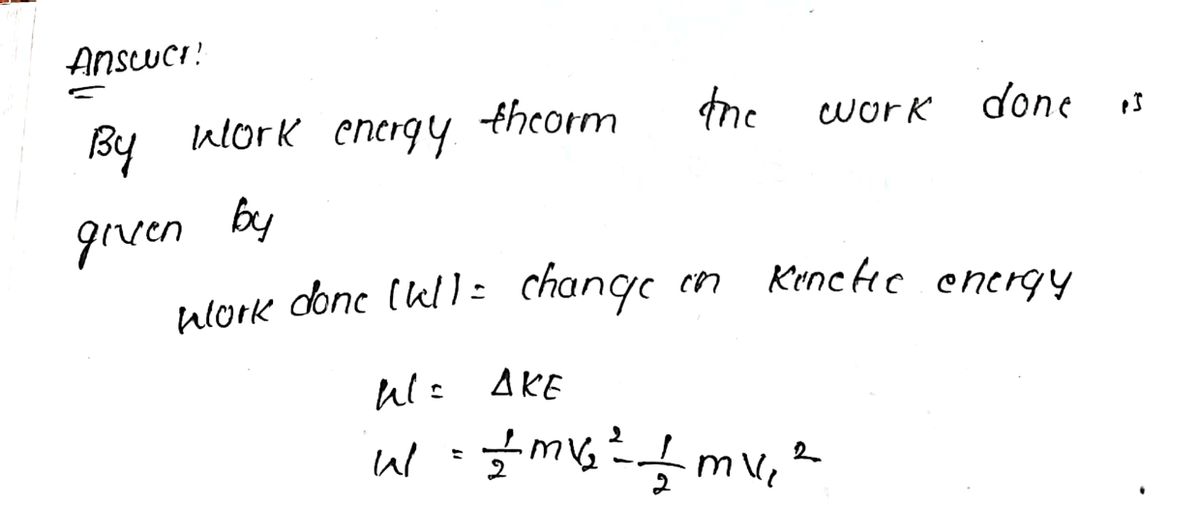 Answer:
By Work energy theorm the work done is
given by
Work done (W) = change in Kinetic energy
W = ΔKE
W = 1/2 mV₂² - 1/2 mV₁²